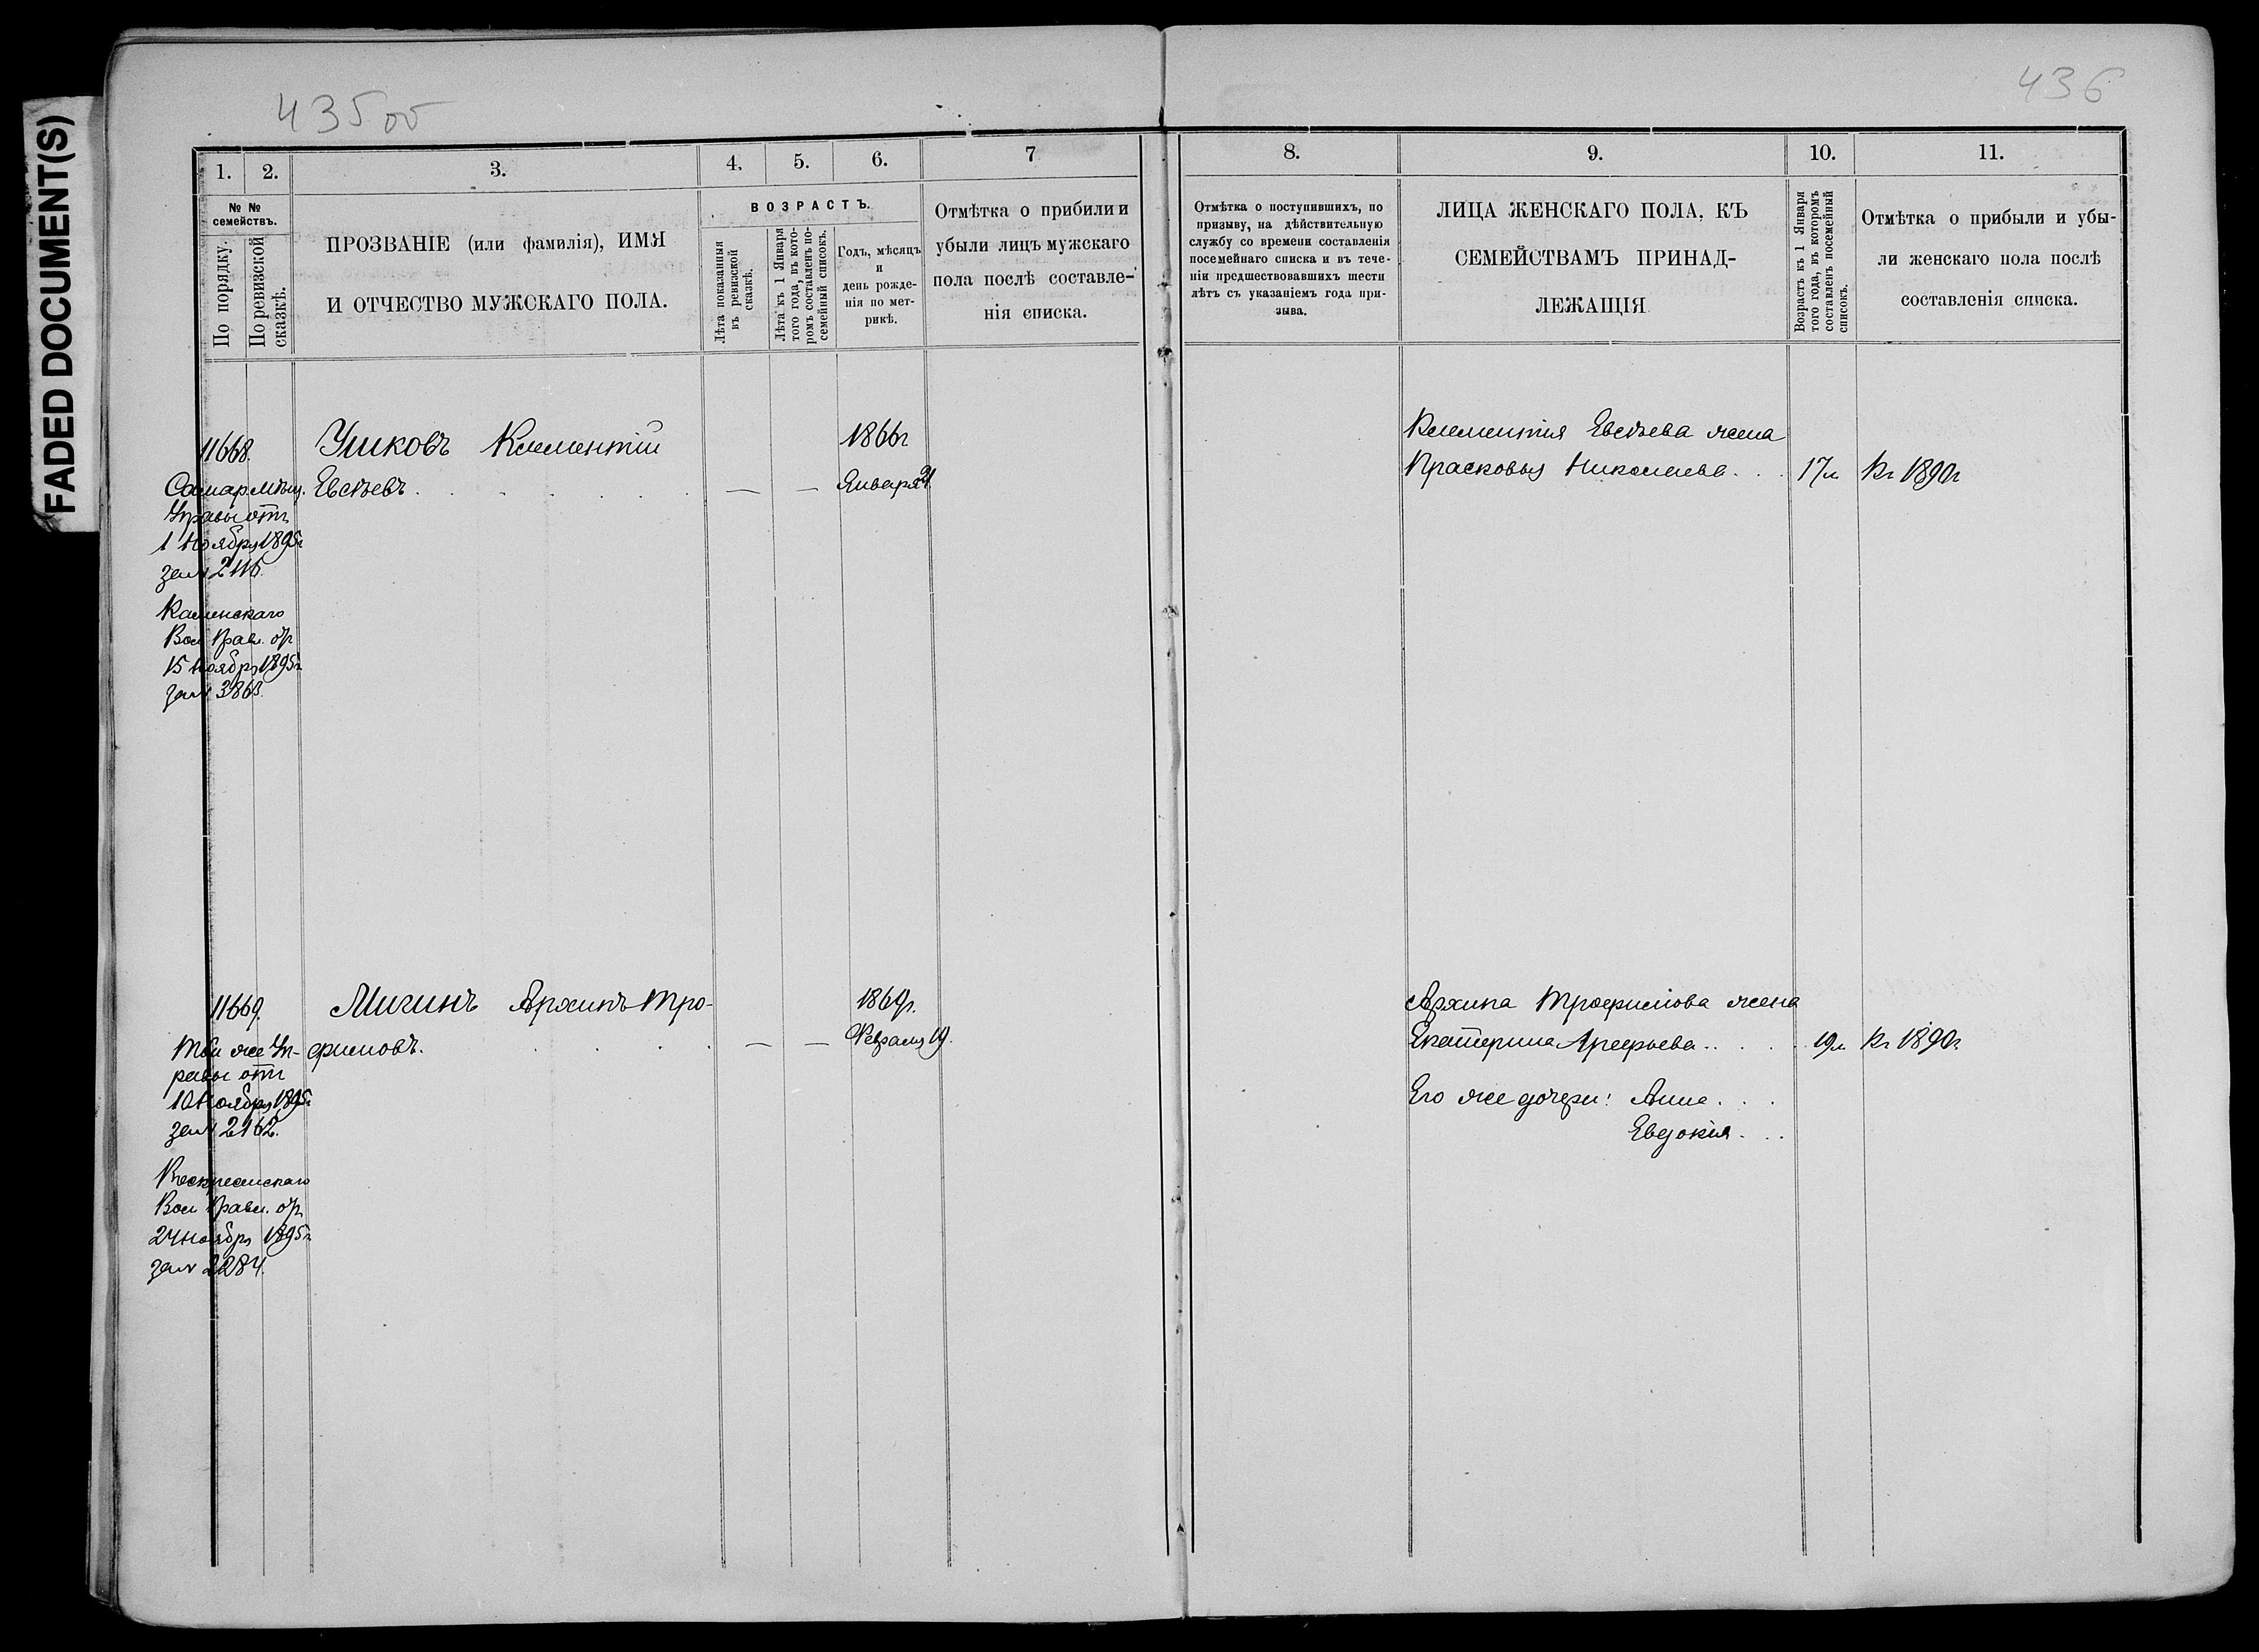 FADED DOCUMENT(S)
435об
436
1.
2.
3.
4.
5.
6.
7
8.
9.
10.
11.
№ №
семействъ.
По порядку.
По ревизской
сказкѣ.
ПРОЗВАНІЕ (или фамилія), ИМЯ
И ОТЧЕСТВО МУЖСКАГО ПОЛА.
ВОЗРАСТЪ.
Лѣта показанныя
въ ревизской
сказкѣ.
Лѣта къ 1 Января
того года, въ кото-
ромъ составленъ по-
семейный списокъ.
Годъ, мѣсяцъ
и
день рожде-
нія по мет-
рикѣ.
Отмѣтка о прибили и
убыли лицъ мужскаго
пола послѣ составле-
нія списка.
Отмѣтка о поступившихъ, по
призыву, на дѣйствительную
службу со времени составленія
посемейнаго списка и въ тече-
ніи предшествовавшихъ шести
лѣтъ съ указаніемъ года при-
зыва.
ЛИЦА ЖЕНСКАГО ПОЛА, КЪ
СЕМЕЙСТВАМЪ ПРИНАД-
ЛЕЖАЩІЯ
Возрастъ къ 1 Января
того года, въ которомъ
составленъ посемейный
списокъ.
Отмѣтка о прибыли и убы-
ли женскаго пола послѣ
составленія списка.
11668.
Самар. мѣщ.
Управы отъ
1 Ноября 1895г
за № 2116.
Каменскаго
Вол Правл. от
15 Ноября 1895г
за № 3863.
Ушковъ Клементій
Евсѣевъ . . . . . .
— —
1866г
Января 21.
Клементія Евсѣева жена
Прасковья Николаева . . .
17л
Къ 1890г
11669.
Той же Уп-
равы отъ
10 Ноября 1895г
за № 2162.
Воскресенскаго
Вол Правл. от
24 Ноября 1895г
за № 2284.
Мигинъ Архипъ Тро-
фимовъ. . . . .
— —
1869г.
Февраля 19.
Архипа Трофимова жена
Екатерина Арефьева . . . . .
19л
Къ 1890г
Его же дочери: Анна . . .
Евдокія . . .